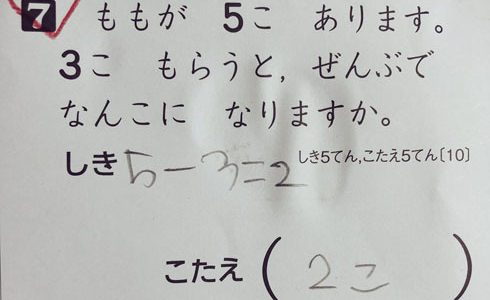 7 ももが 5こ あります。
3こ もらうと, ぜんぶで
なんこに なりますか。
しき 5-3=2 しき5てん,こたえ5てん〔10〕
こたえ ( 2こ )